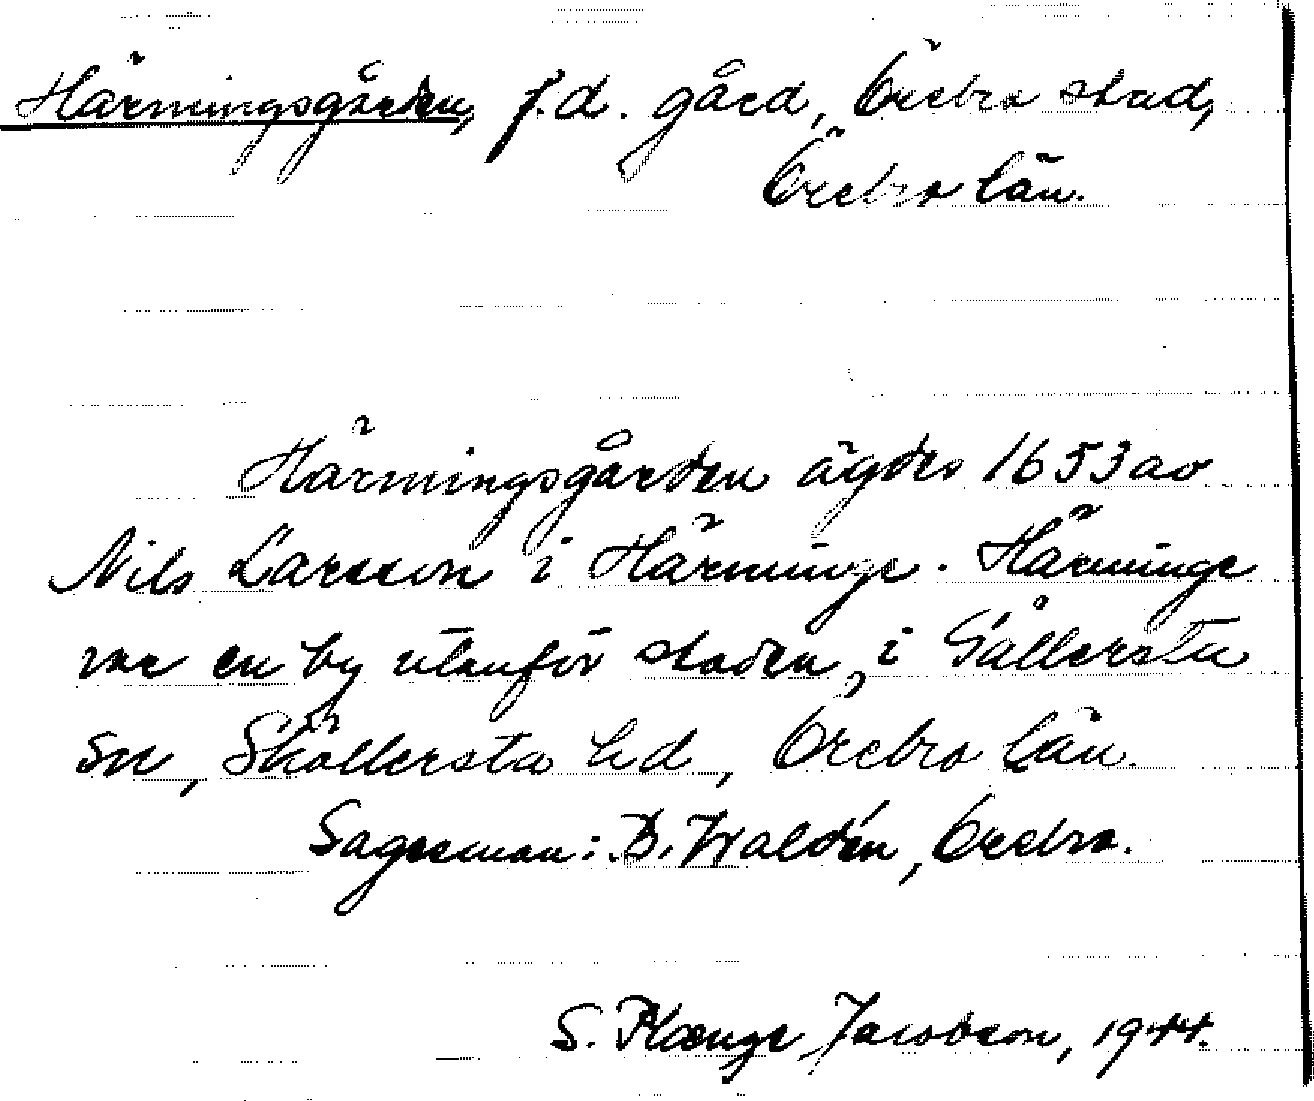 Härmingsgården, f.d. gård, Örebro stad,
Örebro län.
Härmingsgården ägdes 1653 av
Nils Larsson i Härminge. Härminge
var en by utanför staden, i Gällersta
sn, Sköllersta hd, Örebro län.
Sagesman: B. Waldén, Örebro.
S. Plænge Jacobson, 1944.